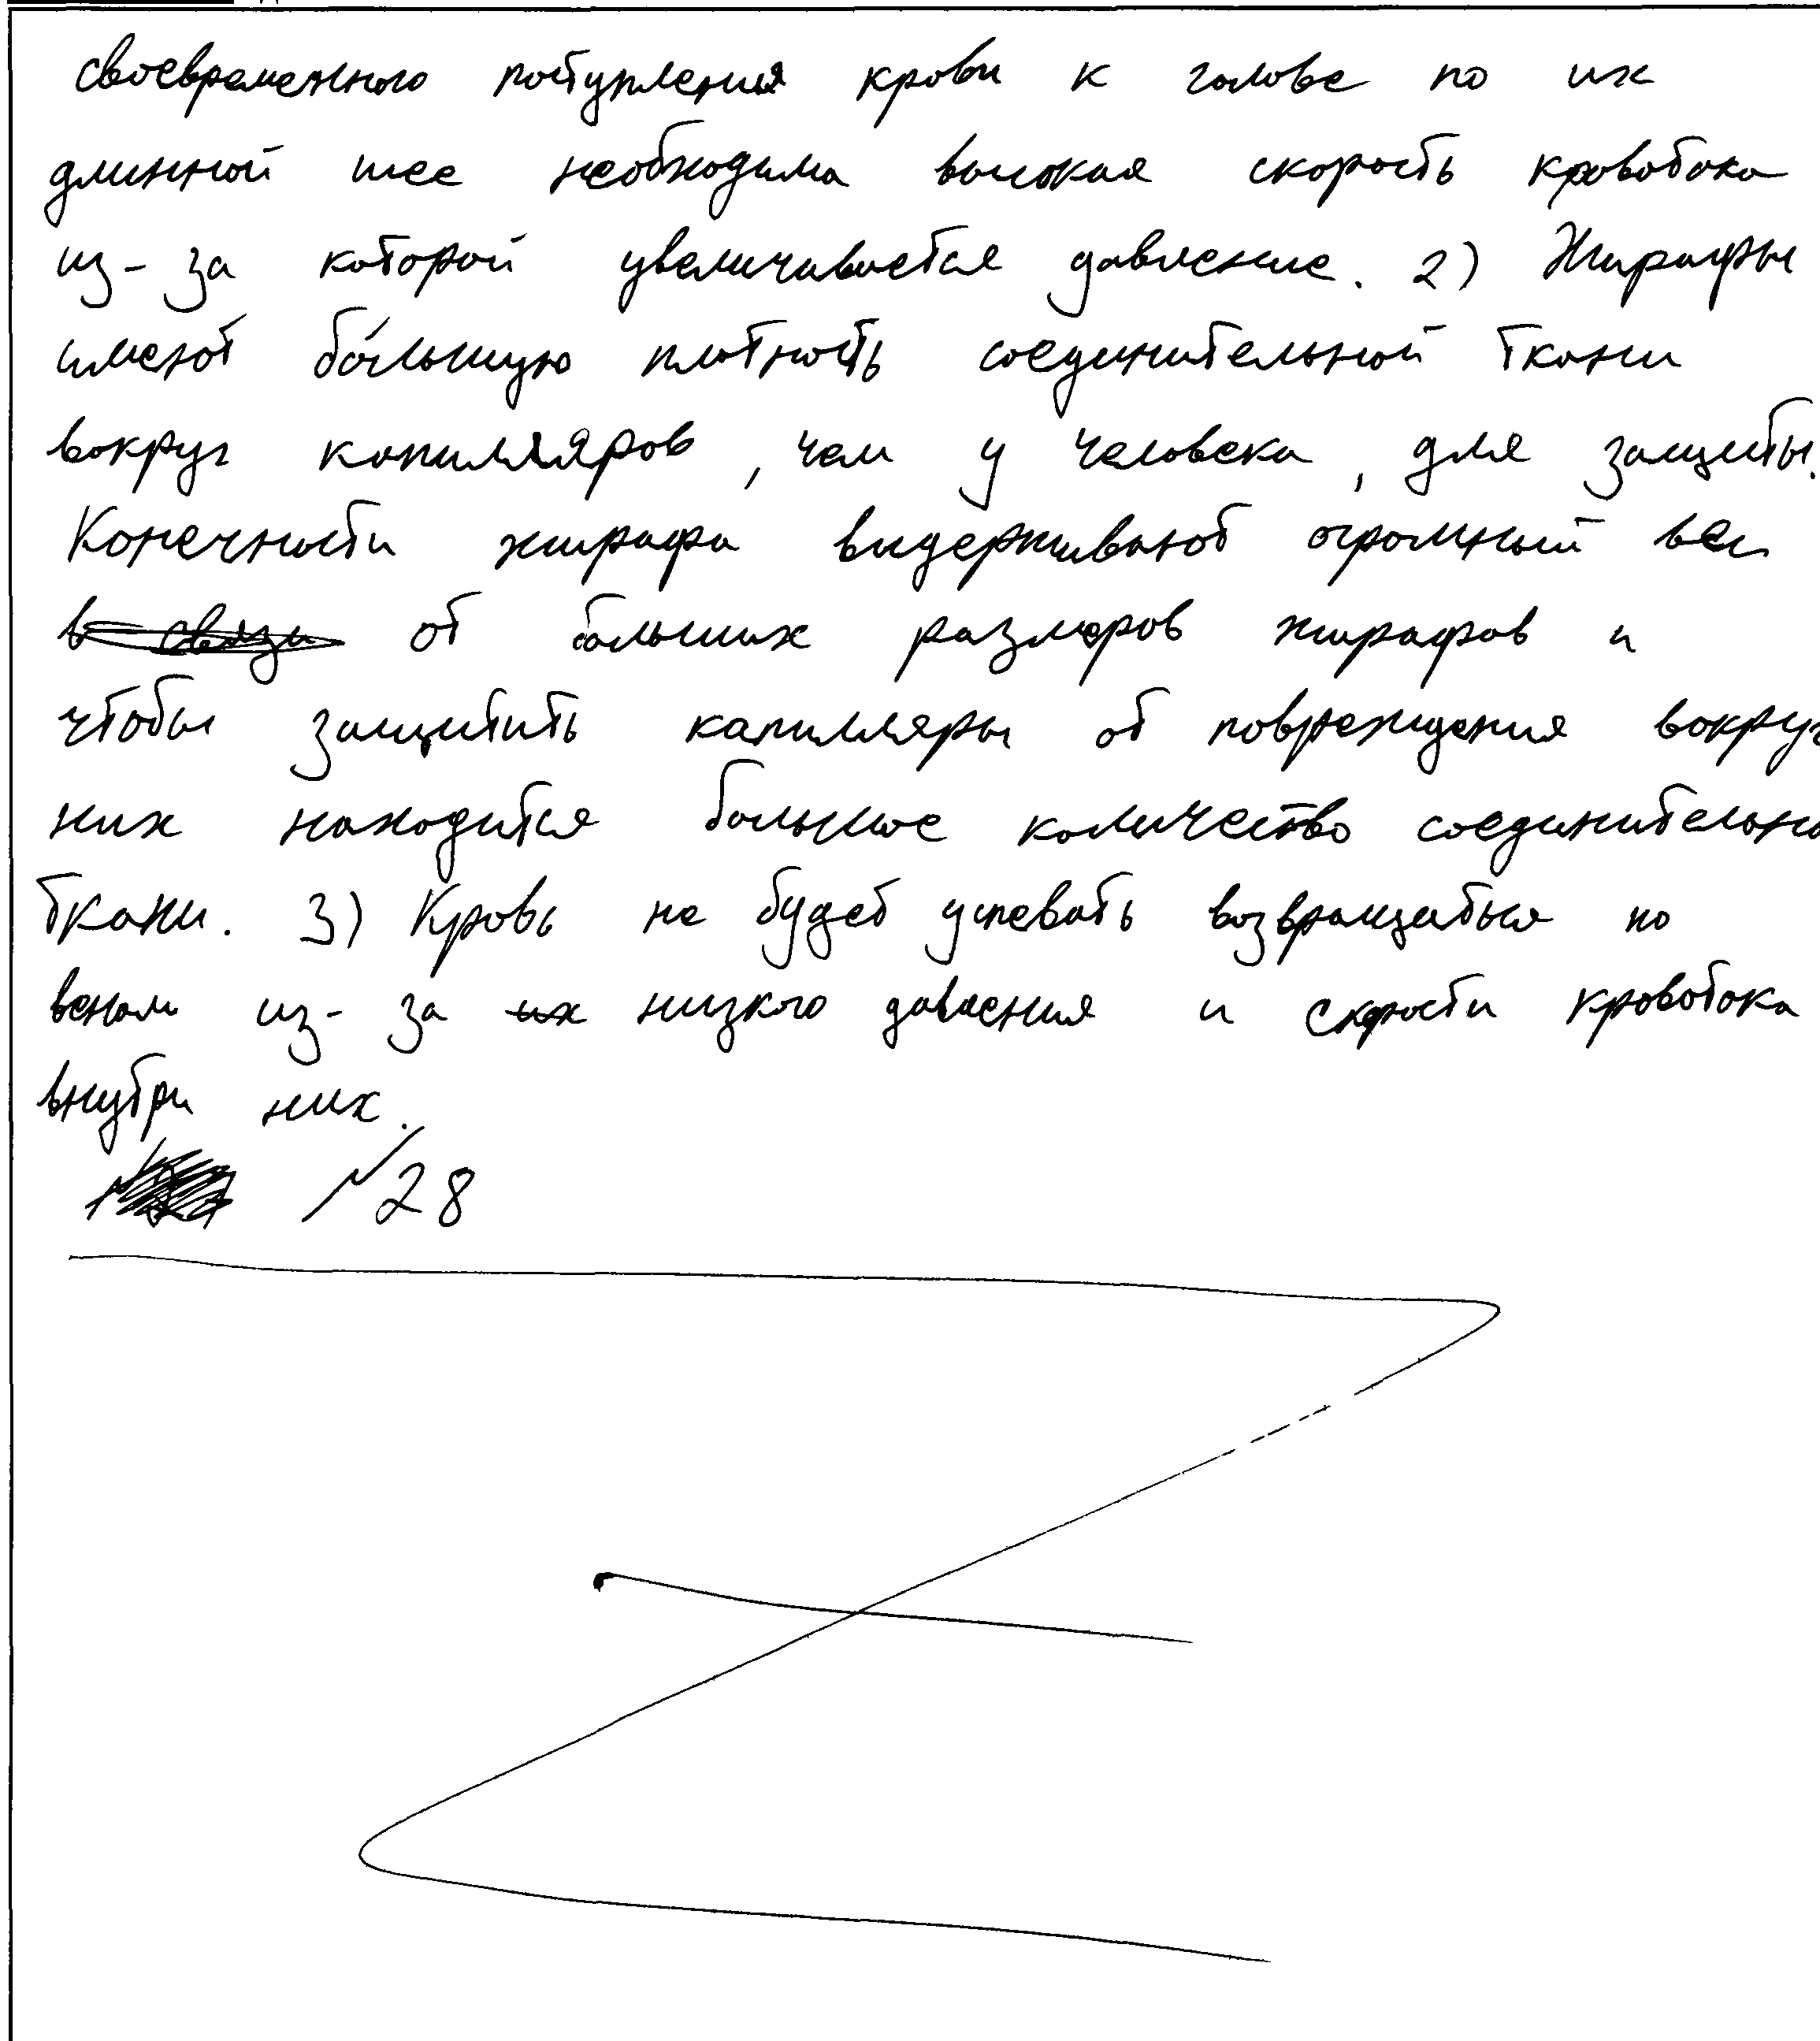 своевременного поступления крови к голове по их
длинной шее необходима высокая скорость кровотока
из-за которой увеличивается давление. 2) Жирафы
имеют бо́льшую плотность соединительной ткани
вокруг капилляров, чем у человека, для защиты.
Конечности жирафа выдерживают огромный вес
от больших размеров жирафов и
чтобы защитить капилляры от повреждения вокруг
них находится большое количество соединительно
ткани. 3) Кровь не будет успевать возвращаться по
венам из-за низкого давления и скорости кровотока
внутри них.
№28